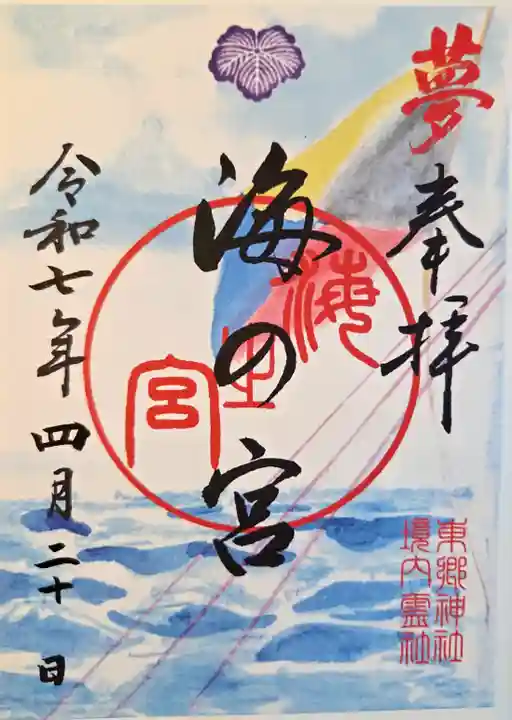 夢
奉拝
東郷神社
境内霊社
海の宮
海
之
宮
令和七年四月二十日